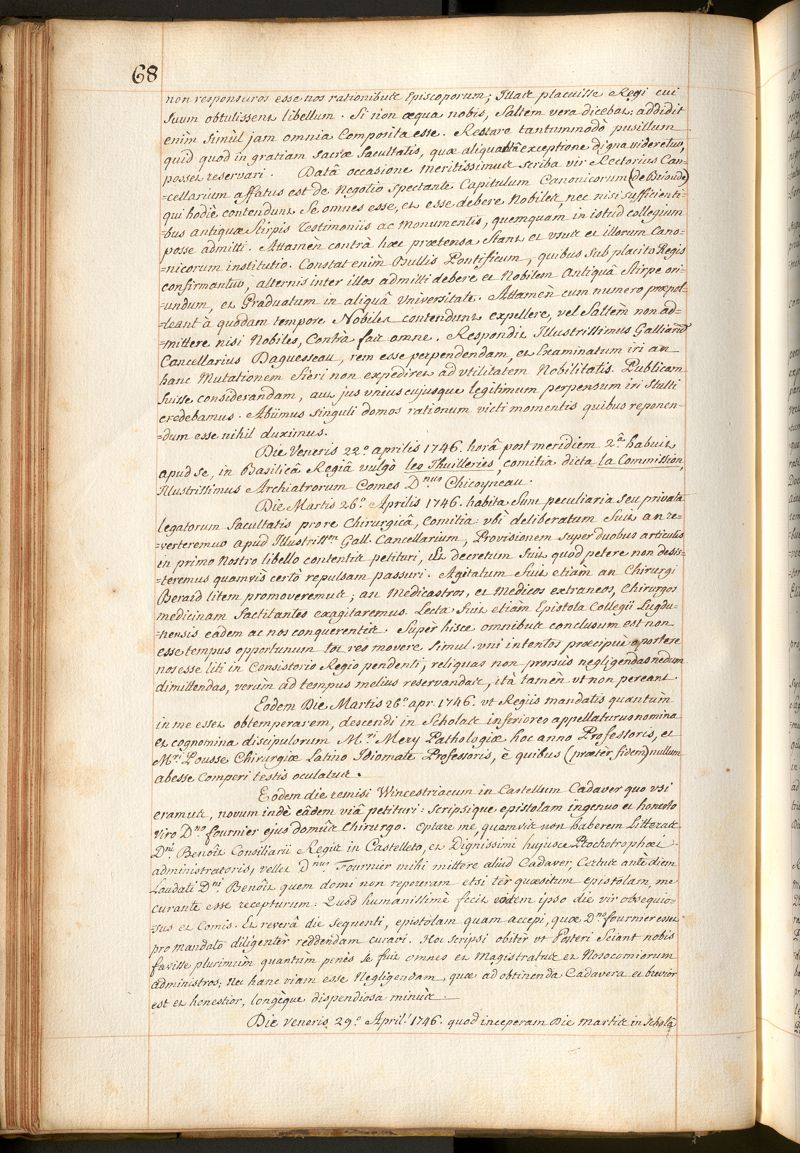 68
non responsuros esse nos rationibus Episcoporum; Illas placuisse Regi cui
suum obtulissent libellum. Si non æqua nobis, saltem vera dicebat: addidit
enim simul jam omnia Composita esse. Restare tantummodò pusillum
quid quod in gratiam Sacræ Facultatis, quæ aliqua exceptione digna videretur,
posset reservari. Datâ occasione meritissimus scriba vir Rectorius Can-
=cellarium affatus est de Negotio Spectante Capitulum Canonicorum (de Brioude)
qui hodiè contendunt se omnes esse, et esse debere Nobiles nec nisi sufficienti-
bus antiquæ Stirpis Testimoniis ac Monumentis, quemquam in istud collegium
posse admitti. Attamen contrà hæc prætensa stant et usus et illorum Cano-
=nicorum institutio. Constat enim Bullis Pontificum, quibus sub placito Regis
confirmantur, alternis inter illos admitti debere et Nobilem Antiquâ Stirpe ori-
=undum, et Graduatum in aliquâ Universitate. Attamen cum numero præpol-
=leant à quodam tempore Nobiles contendunt expellere, vel saltem non ad-
=mittere nisi Nobiles, Contrà fas omne. Respondit Illustrissimus Galliarū
Cancellarius Daguesseau, rem esse perpendendam, et Examinatum iri an
hanc Mutationem fieri non expediret ad utilitatem Nobilitatis. Publicam
fuisse considerandam, aut jus uniuscujusque legitimum perpensum iri stulti
credebamus. Abiimus singuli domos rationum victi momentis quibus reponen-
=dum esse nihil duximus.
Die Veneris 22â aprilis 1746. horâ post meridiem 2â habuit
apud se, in Basilicâ Regiâ vulgò les Thuilleries, comitia dicta la Commission,
Illustrissimus Archiatrorum Comes D.nus Chicoyneau.
Die Martis 26â Aprilis 1746. habita sunt peculiaria seu privata
legatorum Facultatis pro re Chirurgicâ, Comitia: ubi deliberatum fuit an re-
=verteremur apud Illustriss.m Gall. Cancellarium, Provisionem super duobus articulis
in primo Nostro libello contentis petituri, Et decretum fuit quod petere non desis-
=teremus quamvis certò repulsam passuri. Agitatum fuit etiam an Chirurgi
Beraid litem promoveremus; an Medicastros, et Medicos extraneos, Chirurgos
medicinam factitantes exagitaremus. Lecta fuit etiam Epistola Collegii Lugdu-
=nensis eâdem ac nos conquerentis. Super hisce omnibus conclusum est non
esse tempus opportunum tot res movere simul. uni intentos præcipuè oportere
nos esse liti in Consistorio Regio pendenti, reliquas non prorsùs negligendas nedum
dimittendas, verùm ad tempus melius reservandas, ità tamen ut non pereant.
Eodem Die Martis 26â apr. 1746. ut Regiis mandatis quantùm
in me esset obtemperarem, descendi in Scholas inferiores appellaturus nomina
et cognomina discipulorum M.ri Mery Pathologiæ hoc anno Professoris, et
M.ri Pousse Chirurgiæ Latino Idiomate Professoris, è quibus (præter fidem) nullum
abesse Comperi testis oculatus.
Eodem die remisi Wincestriacum in Castellum Cadaver quo usi
eramus, novum indè eâdem viâ petituri: scripsique epistolam ingenuo et honesto
viro D.no fournier ejus domûs Chirurgo. Optare me, quamvis non haberem Litteras
D.ni Benoît Consiliarii Regis in Castelleto, et Dignissimi hujusce Ptochotrophæi
administratoris, vellet D.nus Fournier mihi mittere aliud Cadaver, Certus antè diem
Laudati D.ni Benoît quem domi non repereram etsi ter quæsitum epistolam, me
curante esse recepturum: Quod humanissimè fecit eodem ipso die vir obsequio-
sus et Comis. Et reverâ die sequenti, epistolam quam accepi, quæ D.no fournier esset
pro mandato diligenter reddendam curavi. Hoc scripsi obiter ut Posteri sciant nobis
favisse plurimùm quantum penès se fuit omnes et Magistratus et Nosocomiorum
administros; Nec hanc viam esse Negligendam, quæ ad obtinenda Cadavera et brevior
est et honestior, longèque dispendiosa minùs.
Die Veneris 29â April. 1746. quod inceperam Die martis in scholâ